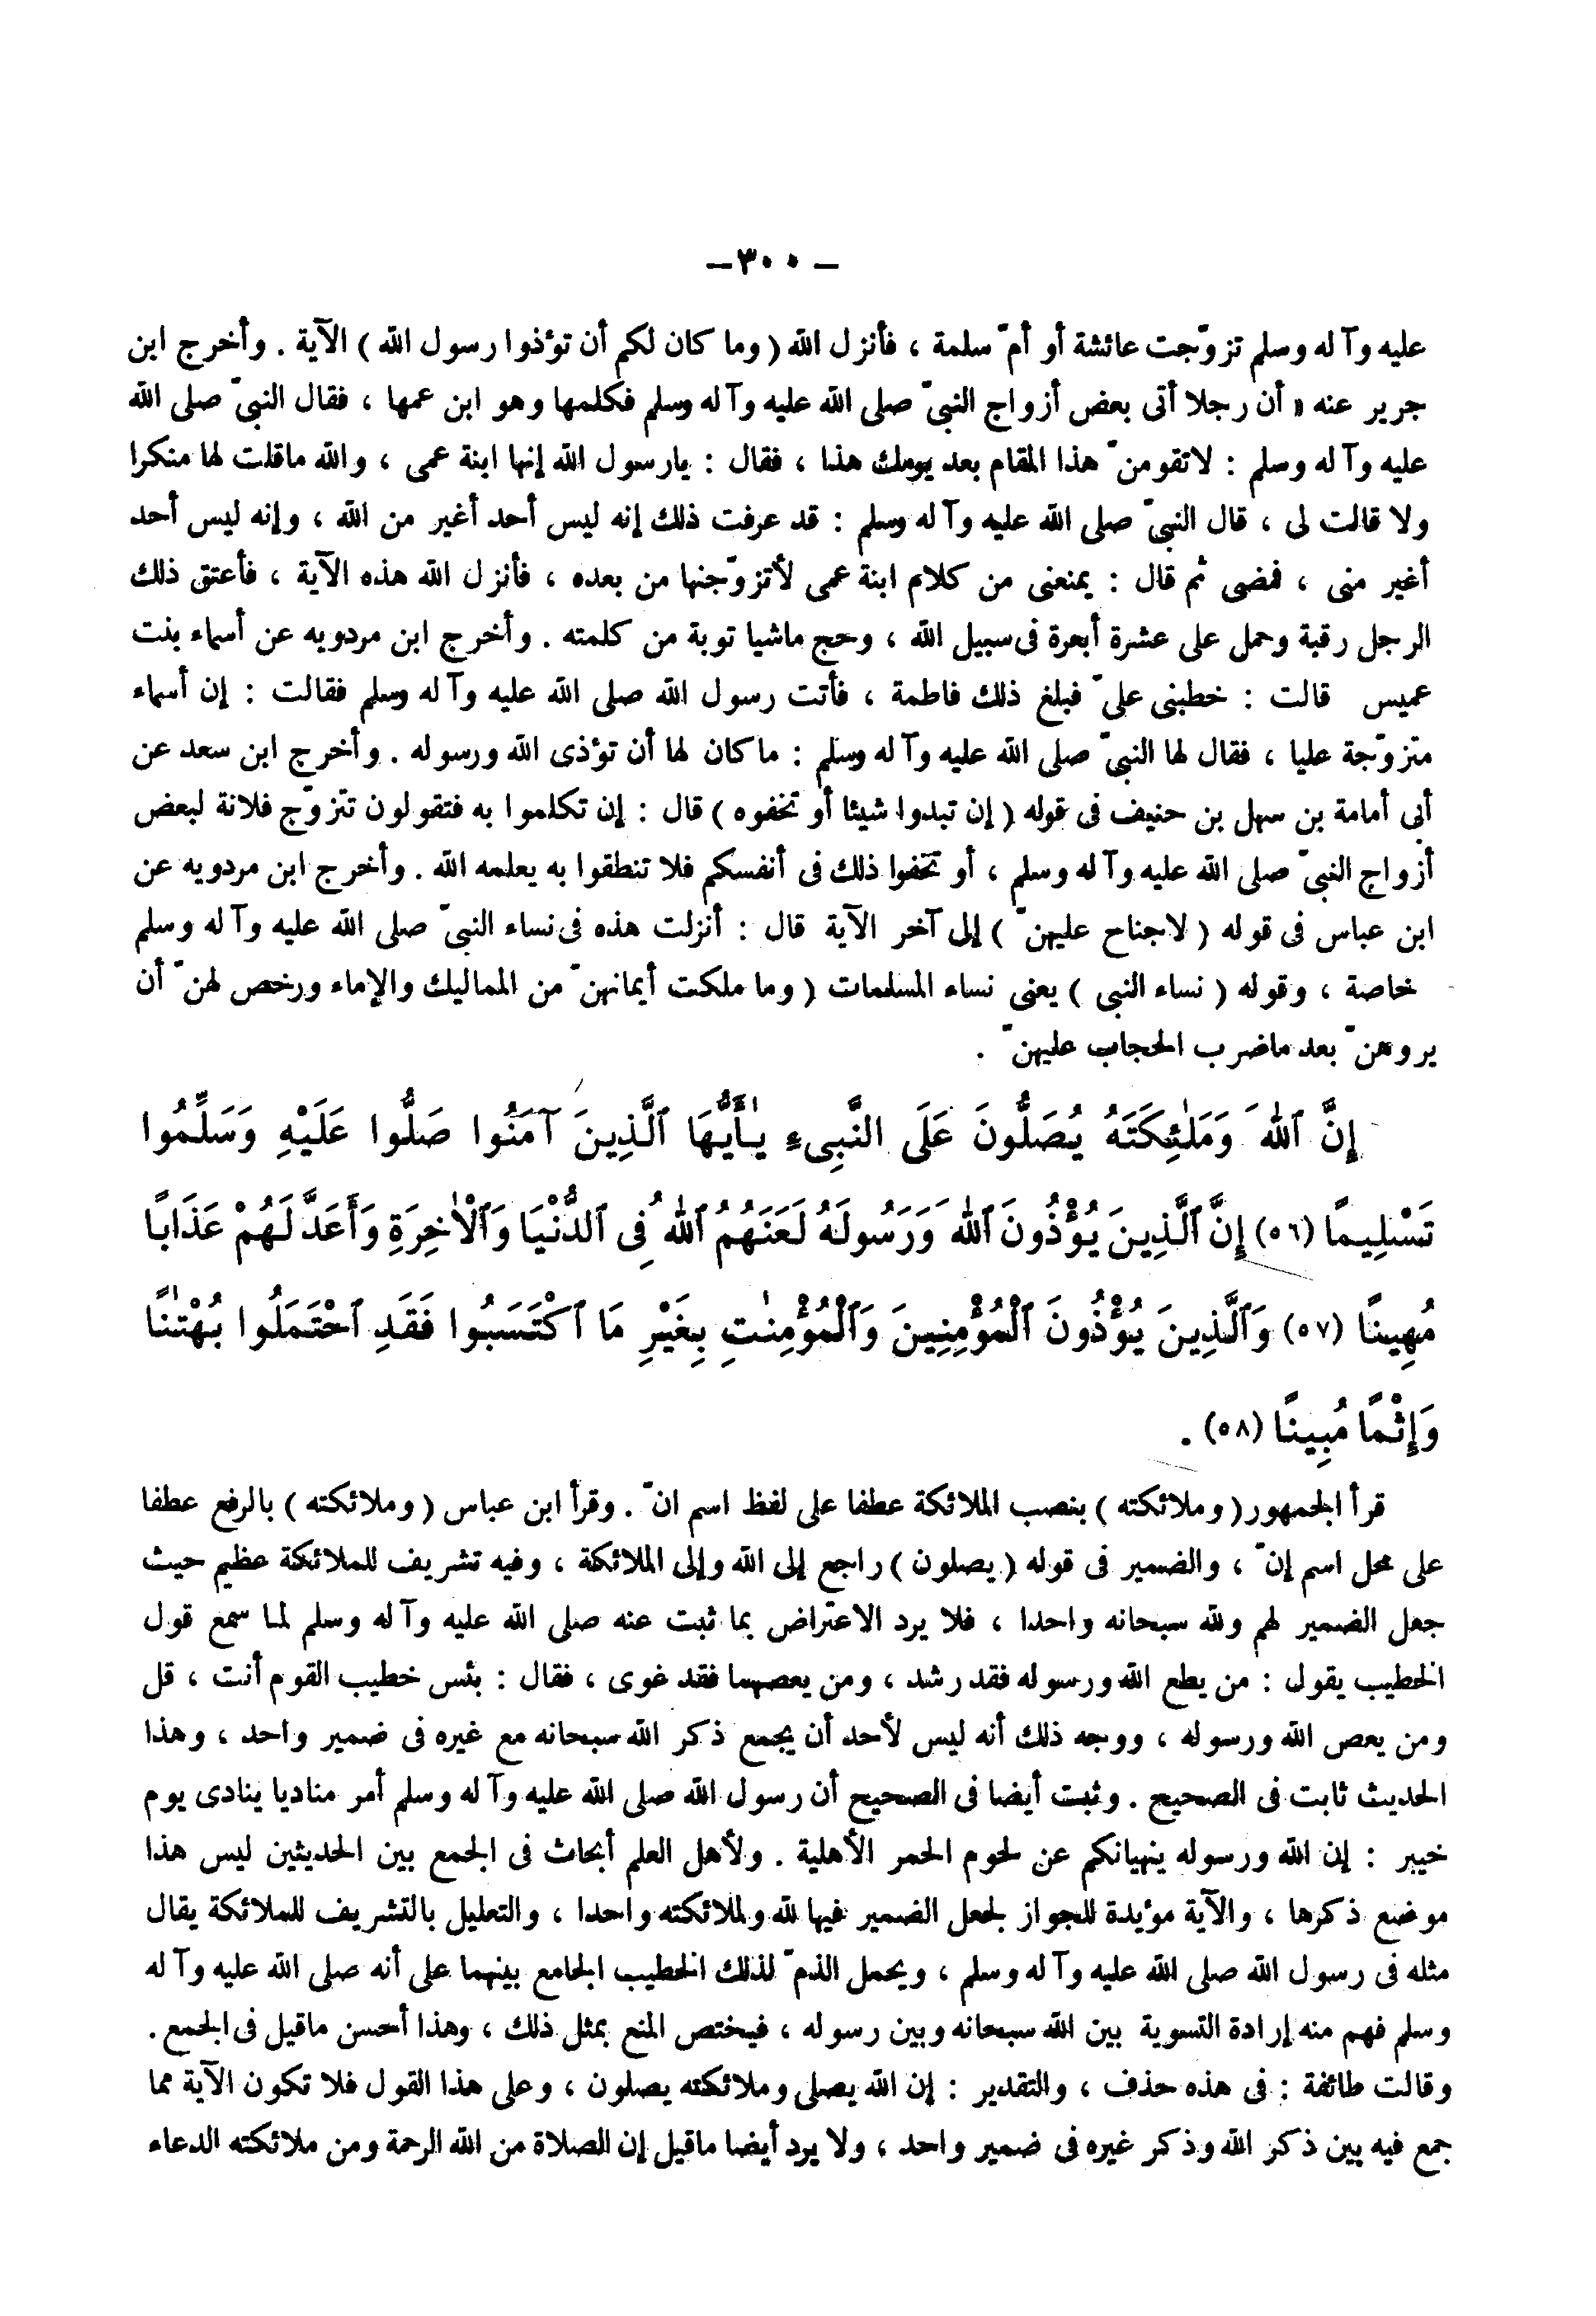 – ٣٠٠ –
عليه وآله وسلم تزوّجت عائشة أو أمّ سلمة ، فأنزل الله ( وما كان لكم أن تؤذوا رسول الله ) الآية . وأخرج ابن
جرير عنه « أن رجلا أتى بعض أزواج النبىّ صلى الله عليه وآله وسلم فكلمها وهو ابن عمها ، فقال النبىّ صلى الله
عليه وآله وسلم : لاتقومنّ هذا المقام بعد يومك هذا ، فقال : يارسول الله إنها ابنة عمى ، والله ماقلت لها منكرا
ولا قالت لى ، قال النبىّ صلى الله عليه وآله وسلم : قد عرفت ذلك إنه ليس أحد أغير من الله ، وإنه ليس أحد
أغير منى ، فمضى ثم قال : يمنعنى من كلام ابنة عمى لأتزوّجنها من بعده ، فأنزل الله هذه الآية ، فأعتق ذلك
الرجل رقبة وحمل على عشرة أبعرة فى سبيل الله ، وحج ماشيا توبة من كلمته . وأخرج ابن مردويه عن أسماء بنت
عميس قالت : خطبنى علىّ فبلغ ذلك فاطمة ، فأتت رسول الله صلى الله عليه وآله وسلم فقالت : إن أسماء
متزوّجة عليا ، فقال لها النبىّ صلى الله عليه وآله وسلم : ماكان لها أن تؤذى الله ورسوله . وأخرج ابن سعد عن
أبى أمامة بن سهل بن حنيف فى قوله ( إن تبدوا شيئا أو تخفوه ) قال : إن تكلموا به فتقولون تتزوّج فلانة لبعض
أزواج النبىّ صلى الله عليه وآله وسلم ، أو تخفوا ذلك فى أنفسكم فلا تنطقوا به يعلمه الله . وأخرج ابن مردويه عن
ابن عباس فى قوله ( لاجناح عليهنّ ) إلى آخر الآية قال : أنزلت هذه فى نساء النبىّ صلى الله عليه وآله وسلم
خاصة ، وقوله ( نساء النبى ) يعنى نساء المسلمات ( وما ملكت أيمانهنّ من المماليك والإماء ورخص لهنّ أن
يروهنّ بعد ماضرب الحجاب عليهنّ .
إِنَّ ٱللهَ وَمَلَٰئِكَتَهُ يُصَلُّونَ عَلَى النَّبِىءِ يَٰأَيُّهَا ٱلَّذِينَ آمَنُوا صَلُّوا عَلَيْهِ وَسَلِّمُوا
تَسْلِيمًا (٥٦) إِنَّ ٱلَّذِينَ يُؤْذُونَ ٱللهَ وَرَسُولَهُ لَعَنَهُمُ ٱللهُ فِى ٱلدُّنْيَا وَٱلْأٰخِرَةِ وَأَعَدَّ لَهُمْ عَذَابًا
مُهِينًا (٥٧) وَٱلَّذِينَ يُؤْذُونَ ٱلْمُؤْمِنِينَ وَٱلْمُؤْمِنٰتِ بِغَيْرِ مَا ٱكْتَسَبُوا فَقَدِ ٱحْتَمَلُوا بُهْتٰنًا
وَإِثْمًا مُبِينًا (٥٨) .
قرأ الجمهور ( وملائكته ) بنصب الملائكة عطفا على لفظ اسم انّ . وقرأ ابن عباس ( وملائكته ) بالرفع عطفا
على محل اسم إنّ ، والضمير فى قوله ( يصلون ) راجع إلى الله وإلى الملائكة ، وفيه تشريف للملائكة عظيم حيث
جعل الضمير لهم ولله سبحانه واحدا ، فلا يرد الاعتراض بما ثبت عنه صلى الله عليه وآله وسلم لما سمع قول
الخطيب يقول : من يطع الله ورسوله فقد رشد ، ومن يعصهما فقد غوى ، فقال : بئس خطيب القوم أنت ، قل
ومن يعص الله ورسوله ، ووجه ذلك أنه ليس لأحد أن يجمع ذكر الله سبحانه مع غيره فى ضمير واحد ، وهذا
الحديث ثابت فى الصحيح . وثبت أيضا فى الصحيح أن رسول الله صلى الله عليه وآله وسلم أمر مناديا ينادى يوم
خيبر : إن الله ورسوله ينهيانكم عن لحوم الحمر الأهلية . ولأهل العلم أبحاث فى الجمع بين الحديثين ليس هذا
موضع ذكرها ، والآية مؤيدة للجواز لجعل الضمير فيها لله ولملائكته واحدا ، والتعليل بالتشريف للملائكة يقال
مثله فى رسول الله صلى الله عليه وآله وسلم ، ويحمل الذمّ لذلك الخطيب الجامع بينهما على أنه صلى الله عليه وآله
وسلم فهم منه إرادة التسوية بين الله سبحانه وبين رسوله ، فيختص المنع بمثل ذلك ، وهذا أحسن ماقيل فى الجمع .
وقالت طائفة : فى هذه حذف ، والتقدير : إن الله يصلى وملائكته يصلون ، وعلى هذا القول فلا تكون الآية مما
جمع فيه بين ذكر الله وذكر غيره فى ضمير واحد ، ولا يرد أيضا ماقيل إن الصلاة من الله الرحمة ومن ملائكته الدعاء